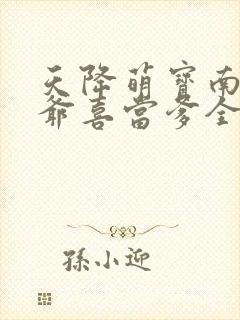 天降萌寶南
爺喜當爹全
孫小迎